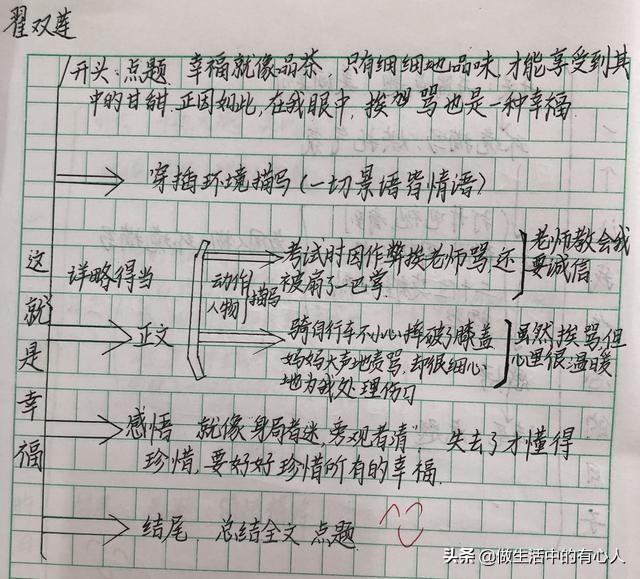 翟双莲
开头:点题. 幸福就像品茶,只有细细地品味,才能享受到其
中的甘甜.正因如此,在我眼中,挨骂也是一种幸福.
穿插环境描写(一切景语皆情语)
这就是幸福
详略得当
正文
动作
人物
描写
考试时因作弊挨老师骂,还
被扇了一巴掌.
老师教会我
要诚信.
骑自行车不小心摔破了膝盖
妈妈大声地责骂.却很细心
地为我处理伤口
虽然挨骂,但
心里很温暖
感悟 就像"身局者迷 旁观者清", 失去了才懂得
珍惜,要好好珍惜所有的幸福.
结尾. 总结全文 点题.
头条 @做生活中的有心人